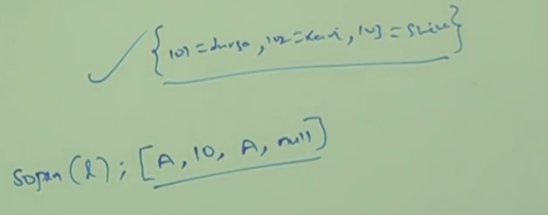 {101=durga, 102=Ravi, 103=Shiva}
Sopln(l); [A, 10, A, null]